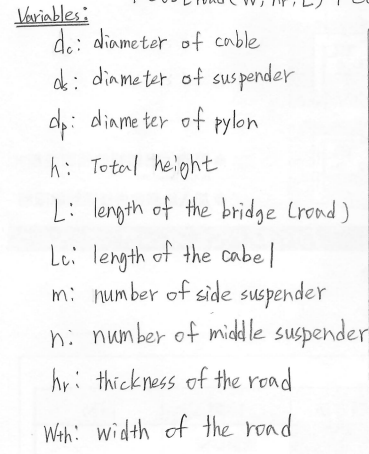 Variables:
dc: diameter of cable
ds: diameter of suspender
dp: diameter of pylon
h: Total height
L: length of the bridge (road)
Lc: length of the cabel
m: number of side suspender
n: number of middle suspender
hr: thickness of the road
Wth: width of the road